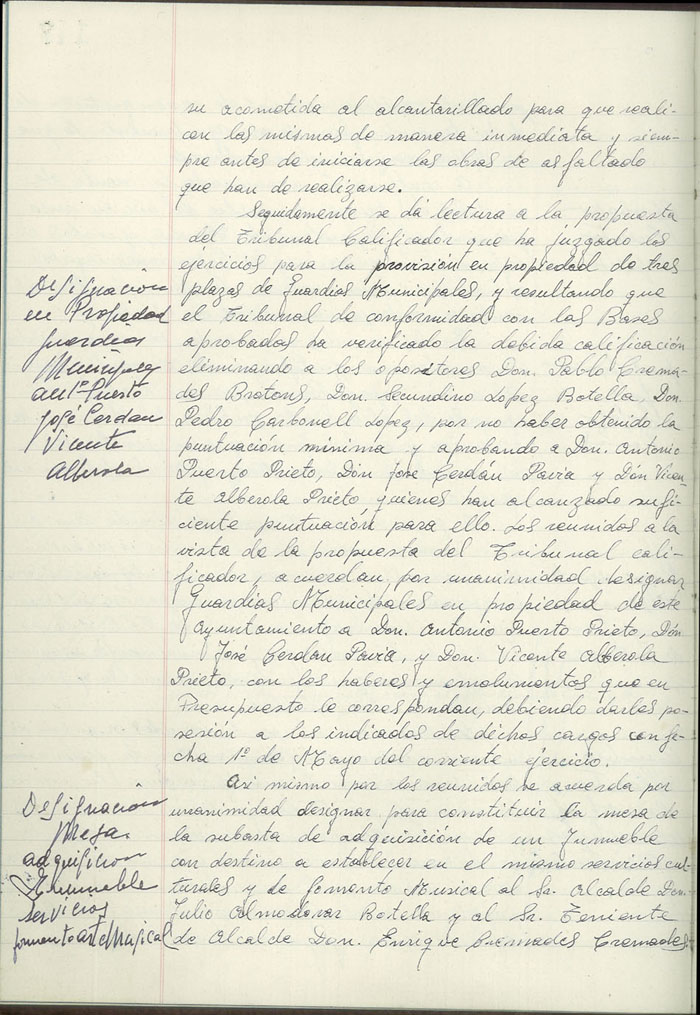 su acometida al alcantarillado para que reali-
cen las mismas de manera inmediata y siem-
pre antes de iniciarse las obras de asfaltado
que han de realizarse.
Seguidamente se dá lectura a la propuesta
del Tribunal Calificador que ha juzgado los
ejercicios para la provisión en propiedad de tres
plazas de Guardias Municipales, y resultando que
el Tribunal de conformidad con las Bases
aprobadas ha verificado la debida calificación
eliminando a los opositores Don. Pablo Crema-
des Brotons, Don. Secundino Lopez Botella, Don.
Pedro Carbonell Lopez, por no haber obtenido la
puntuación mínima y aprobando a Don. Antonio
Puerto Prieto, Dón José Cerdán Pavia y Dón Vicen-
te Alberola Prieto quienes han alcanzado sufi-
ciente puntuación para ello. Los reunidos a la
vista de la propuesta del Tribunal cali-
ficador, acuerdan por unanimidad designar
Guardias Municipales en propiedad de este
Ayuntamiento a Don. Antonio Puerto Prieto, Dón
José Cerdán Pavia, y Don. Vicente Alberola
Prieto, con los haberes y emolumentos que en
Presupuesto le correspondan, debiendo darles po-
sesión a los indicados de dichos cargos con fe-
cha 1º de Mayo del corriente ejercicio.
Asi mismo por los reunidos se acuerda por
unanimidad designar para constituir la mesa de
la subasta de adquisición de un Inmueble
con destino a establecer en el mismo servicios cul-
turales y de fomento Musical al Sr. Alcalde Don.
Julio Almodovar Botella y al Sr. Teniente
de Alcalde Don. Enrique Cremades Cremades.
Designación
en Propiedad
guardias
Municipales
Antº Puerto
José Cerdan
Vicente
Alberola
Designación
Mesa
adquisicion
Inmueble
servicios
fomento arte Musical